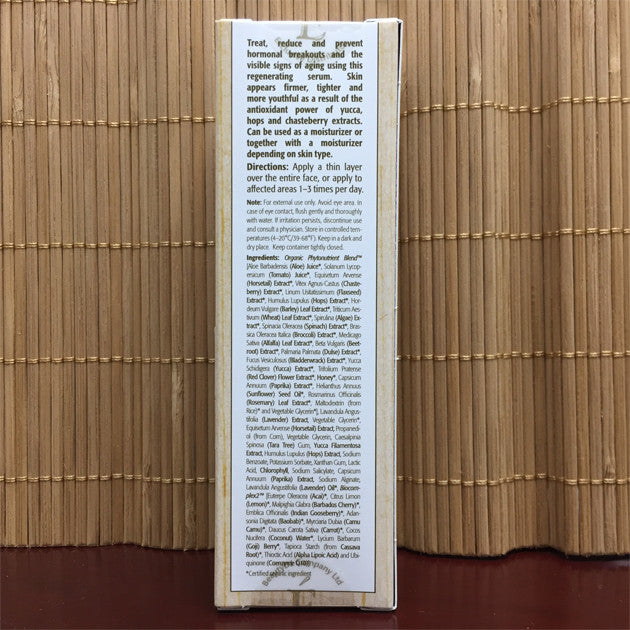 Treat, reduce and prevent
hormonal breakouts and the
visible signs of aging using this
regenerating serum. Skin
appears firmer, tighter and
more youthful as a result of the
antioxidant power of yucca,
hops and chasteberry extracts.
Can be used as a moisturizer or
together with a moisturizer
depending on skin type.
Directions: Apply a thin layer
over the entire face, or apply to
affected areas 1–3 times per day.
Note: For external use only. Avoid eye area. In
case of eye contact, flush gently and thoroughly
with water. If irritation persists, discontinue use
and consult a physician. Store in controlled tem-
peratures (4–20°C/39-68°F). Keep in a dark and
dry place. Keep container tightly closed.
Ingredients: Organic Phytonutrient Blend™
[Aloe Barbadensis (Aloe) Juice*, Solanum Lycop-
ersicum (Tomato) Juice*, Equisetum Arvense
(Horsetail) Extract*, Vitex Agnus-Castus (Chaste-
berry) Extract*, Linum Usitatissimum (Flaxseed)
Extract*, Humulus Lupulus (Hops) Extract*, Hor-
deum Vulgare (Barley) Leaf Extract*, Triticum Aes-
tivum (Wheat) Leaf Extract*, Spirulina (Algae) Ex-
tract*, Spinacia Oleracea (Spinach) Extract*, Bras-
sica Oleracea Italica (Broccoli) Extract*, Medicago
Sativa (Alfalfa) Leaf Extract*, Beta Vulgaris (Beet-
root) Extract*, Palmaria Palmata (Dulse) Extract*,
Fucus Vesiculosus (Bladderwrack) Extract*, Yucca
Schidigera (Yucca) Extract*, Trifolium Pratense
(Red Clover) Flower Extract*, Honey*, Capsicum
Annuum (Paprika) Extract*, Helianthus Annuus
(Sunflower) Seed Oil*, Rosmarinus Officinalis
(Rosemary) Leaf Extract*, Maltodextrin (from
Rice)* and Vegetable Glycerin*], Lavandula Angus-
tifolia (Lavender) Extract, Vegetable Glycerin*,
Equisetum Arvense (Horsetail) Extract, Propanedi-
ol (from Corn), Vegetable Glycerin, Caesalpinia
Spinosa (Tara Tree) Gum, Yucca Filamentosa
Extract, Humulus Lupulus (Hops) Extract, Sodium
Benzoate, Potassium Sorbate, Xanthan Gum, Lactic
Acid, Chlorophyll, Sodium Salicylate, Capsicum
Annuum (Paprika) Extract, Sodium Alginate,
Lavandula Angustifolia (Lavender) Oil*, Biocom-
plex2™ [Euterpe Oleracea (Acai)*, Citrus Limon
(Lemon)*, Malpighia Glabra (Barbados Cherry)*,
Emblica Officinalis (Indian Gooseberry)*, Adan-
sonia Digitata (Baobab)*, Myrciaria Dubia (Camu
Camu)*, Daucus Carota Sativa (Carrot)*, Cocos
Nucifera (Coconut) Water*, Lycium Barbarum
(Goji) Berry*, Tapioca Starch (from Cassava
Root)*, Thioctic Acid (Alpha Lipoic Acid) and Ubi-
quinone (Coenzyme Q10)]
*Certified organic ingredient
Company Ltd